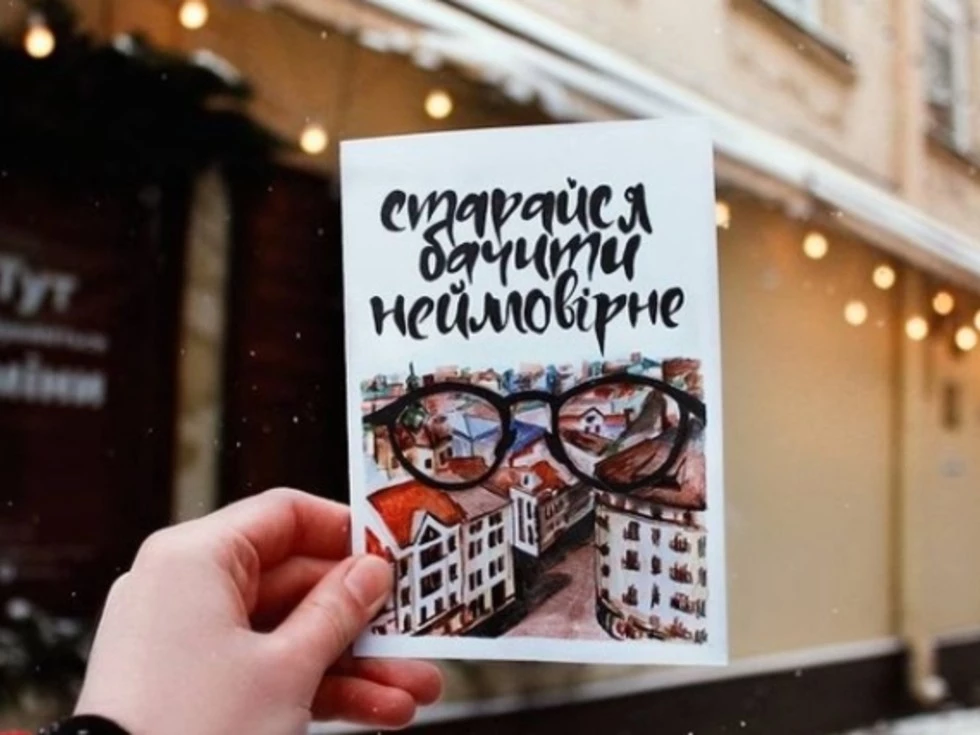 старайся
бачити
неймовірне
Тут
міни